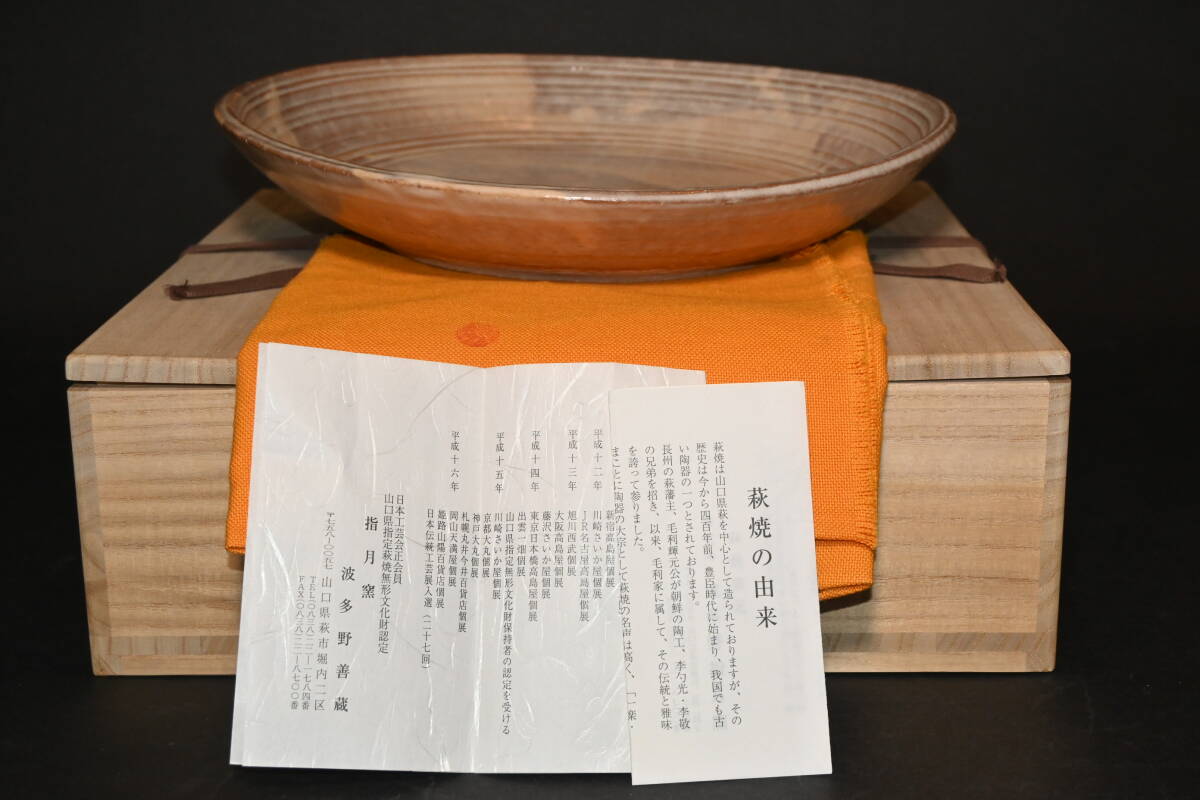 萩焼の由来
萩焼は山口県萩を中心として造られておりますが、その
歴史は今から四百年前、豊臣時代に始まり、我国でも古
い陶器の一つとされております。
長州の萩藩主、毛利輝元公が朝鮮の陶工、李勺光・李敬
の兄弟を招き、以来、毛利家に属して、その伝統と雅味
を誇って参りました。
まことに陶器の大宗として萩焼の名声は高く、「一楽・
平成十二年
新宿高島屋個展
川崎さいか屋個展
ＪＲ名古屋高島屋個展
平成十三年
旭川西武個展
大阪高島屋個展
藤沢さいか屋個展
平成十四年
東京日本橋高島屋個展
出雲一畑個展
山口県指定無形文化財保持者の認定を受ける
平成十五年
川崎さいか屋個展
京都大丸個展
神戸大丸個展
札幌丸井今井百貨店個展
平成十六年
岡山天満屋個展
姫路山陽百貨店個展
日本伝統工芸展入選（二十七回）
日本工芸会正会員
山口県指定萩焼無形文化財認定
指月窯
波多野善蔵
〒七五八－〇〇五七 山口県萩市堀内二区
ＴＥＬ〇八三八－二二－一七八四番
ＦＡＸ〇八三八－二二－八七〇〇番